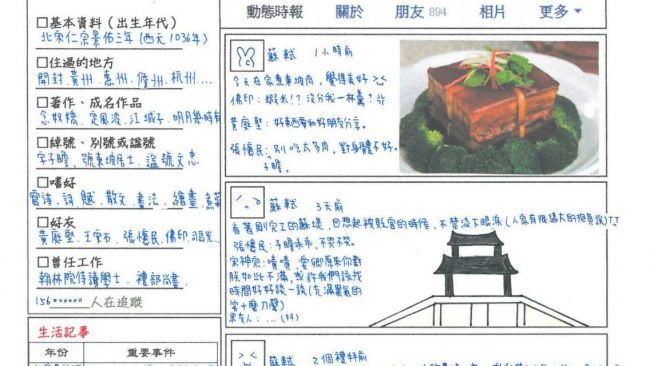 □基本資料（出生年代）
北宋仁宗景佑三年(西元1036年)
□住過的地方
開封.黃州.惠州.儋州.杭州...
□著作、成名作品
念奴嬌、定風波、江城子、明月幾時有
□綽號、別號或謚號
字子瞻、號東坡居士、謚號文忠
□嗜好
寫詩、詞、賦、散文、書法、繪畫、煮菜
□好友
黃庭堅、王安石、張懷民、佛印
□曾任工作
翰林院侍讀學士、禮部尚書
人在追蹤
生活記事
年份 重要事件
動態時報 關於 朋友 894 相片 更多
蘇軾 1小時前
今天在家煮東坡肉，覺得美好><
佛印：蝦米!?沒分我一杯羹?
黃庭堅：好東西要和好朋友分享。
張懷民：別吃太多肉，對身體不好。
子瞻。
蘇軾 3天前
看著剛完工的蘇堤，回想起被貶官的時候，不禁流下眼淚
張懷民：子瞻乖乖，不哭不哭。
宋神宗：嘖嘖，愛卿原來你對
朕如此不滿，或許我們該找
時間好好談一談(充滿殺氣的
笑+磨刀聲)
蘇軾 2個禮拜前